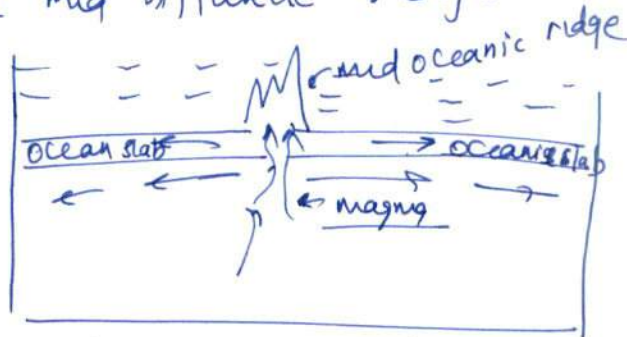 mid
mid oceanic ridge
ocean slab
oceanic slab
magma